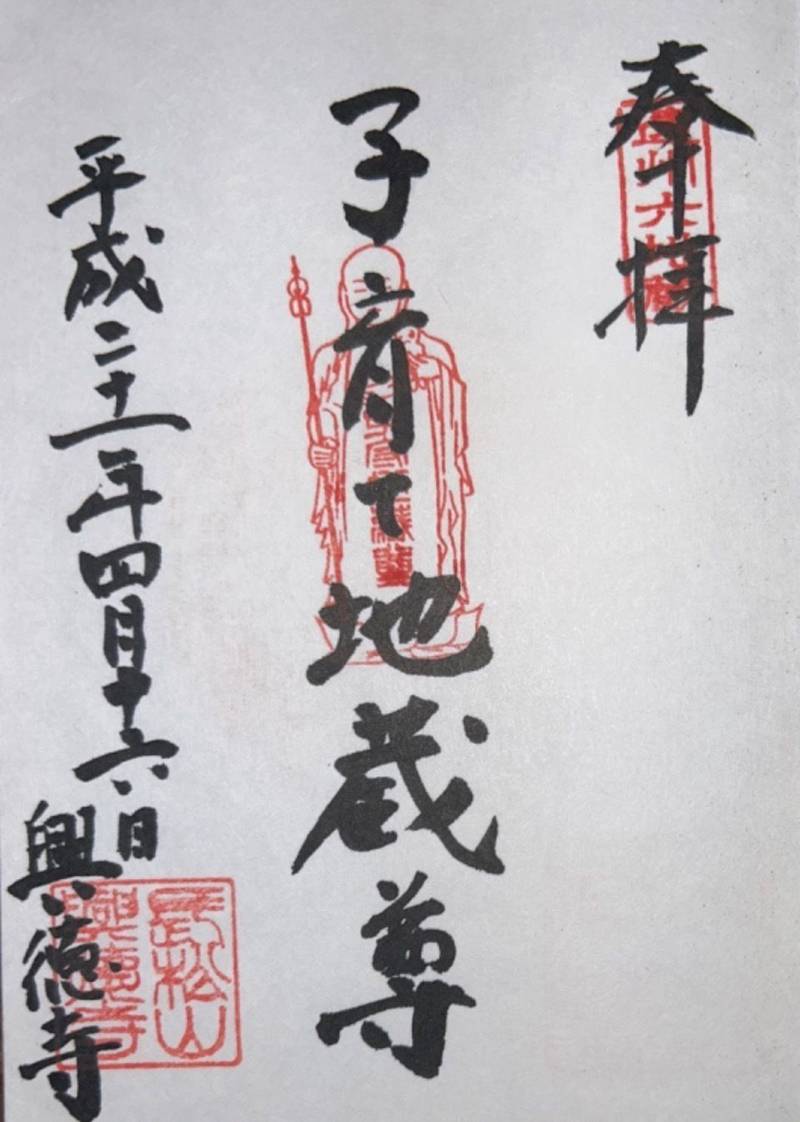 奉拝
子育て地蔵尊
平成二十一年四月十六日
興徳寺
長松山
興徳寺